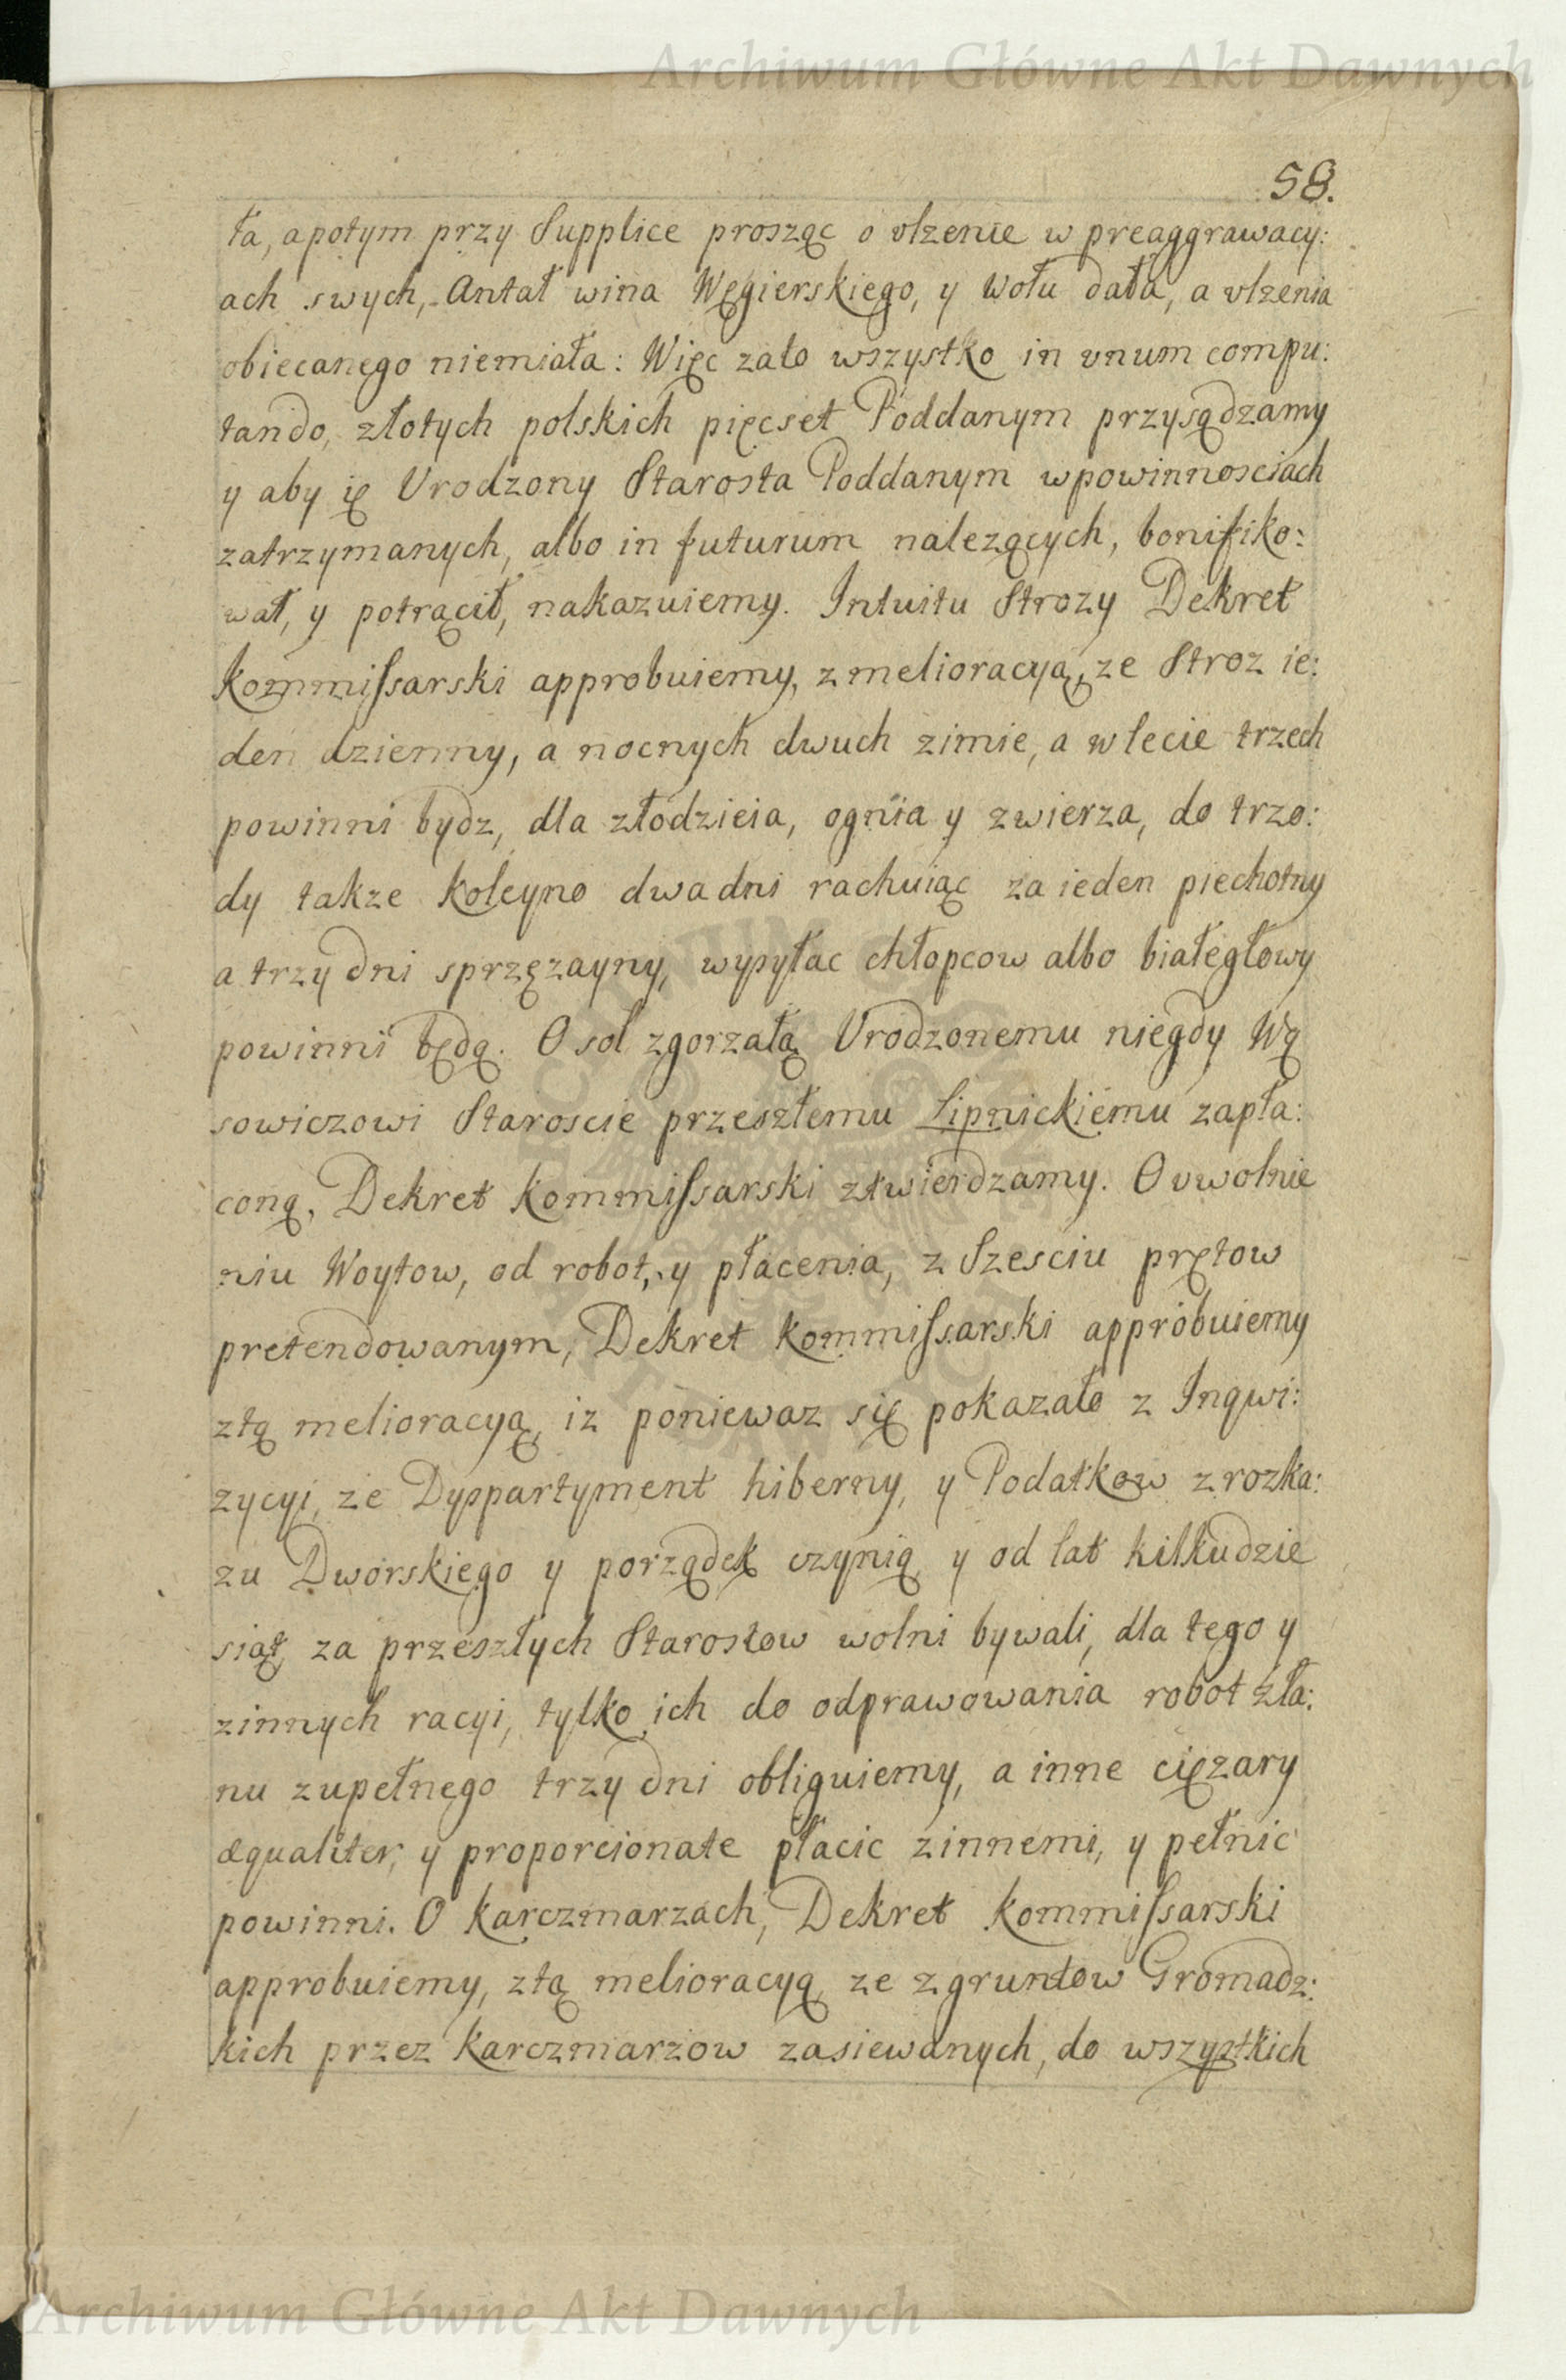 Archiwum Główne Akt Dawnych
58.
ła, apotym przy Supplice prosząc o vlzenie w preaggrawacy:
ach swych, Antał wina Węgierskiego, y Wołu dała, a vlzenia
obiecanego niemiała: Więc zato wszystko in vnum compu:
tando, złotych polskich pięcset Poddanym przysądzamy
y aby ię Vrodzony Starosta Poddanym wpowinnosciach
zatrzymanych, albo in futurum nalezących, bonifiko:
wał, y potrącił, nakazuiemy. Intuitu Strozy Dekret
Kommissarski approbuiemy, z melioracyą, ze Stroz ie:
den dzienny, a nocnych dwuch zimie, a w lecie trzech
powinni bydz, dla złodzieia, ognia y zwierza, do trzo:
dy takze koleyno dwa dni rachuiąc za ieden piechotny
a trzy dni sprzęzayny, wysyłac chłopcow albo białegłowy
powinni będą. O sol zgorzałą Vrodzonemu niegdy Wą
sowiczowi Staroscie przeszłemu Lipnickiemu zapła:
coną, Dekret Kommissarski ztwierdzamy. O vwolnie
niu Woytow, od robot, y płacenia, z Szesciu prętow
pretendowanym, Dekret Kommissarski approbuiemy
ztą melioracyą, iz poniewaz się pokazało z Inqwi:
zycyi, ze Dyspartyment hiberny, y Podatkow z rozka:
zu Dworskiego y porządek czynią, y od lat kilkudzie
siąt, za przeszłych Starostow wolni bywali, dla tego y
zinnych racyi, tylko ich do odprawowania robot zła:
nu zupełnego trzy dni obliguiemy, a inne cięzary
æqualiter, y proporcionate płacic zinnemi, y pełnic
powinni. O Karczmarzach, Dekret Kommissarski
approbuiemy, ztą melioracyą, ze z gruntow Gromadz:
kich przez Karczmarzow zasiewanych, do wszystkich
Archiwum Główne Akt Dawnych